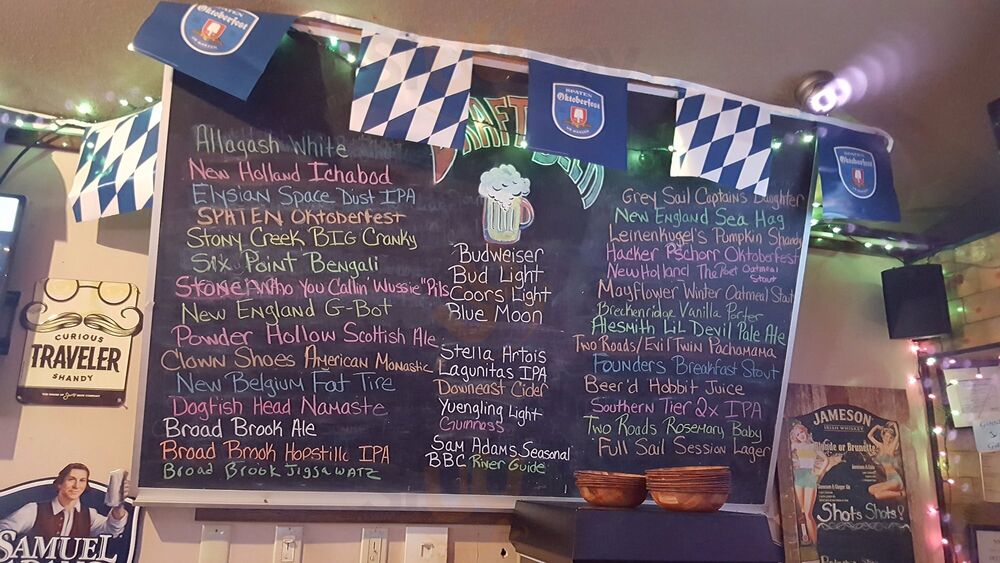 SPATEN
Oktoberfest
SPATEN
Oktoberfest
Oktoberfest
CRAFT
Allagash White
New Holland Ichabod
Elysian Space Dust IPA
SPATEN Oktoberfest
Stony Creek BIG Cranky
Six Point Bengali
STONE Who You Callin' Wussie "Pils
New England G-Bot
Powder Hollow Scottish Ale
Clown Shoes American Monastic
New Belgium Fat Tire
Dogfish Head Namaste
Broad Brook Ale
Broad Brook Hopstillc IPA
Broad Brook Jigsawatz
Budweiser
Bud Light
Coors Light
Blue Moon
Stella Artois
Lagunitas IPA
Downeast Cider
Yuengling Light
Guinness
Sam Adams Seasonal
BBC River Guide
Grey Sail Captain's Daughter
New England Sea Hag
Leinenkugel's Pumpkin Shandy
Hacker Pschorr Oktoberfest
New Holland The Poet Oatmeal
Stout
Mayflower Winter Oatmeal Stout
Breckenridge Vanilla Porter
Alesmith Lil Devil Pale Ale
Two Roads/Evil Twin Pachamama
Founders Breakfast Stout
Beer'd Hobbit Juice
Southern Tier 2x IPA
Two Roads Rosemary Baby
Full Sail Session Lager
CURIOUS
TRAVELER
SHANDY
SAMUEL
JAMESON
IRISH WHISKEY
Blonde or Brunette
Shots Shots!